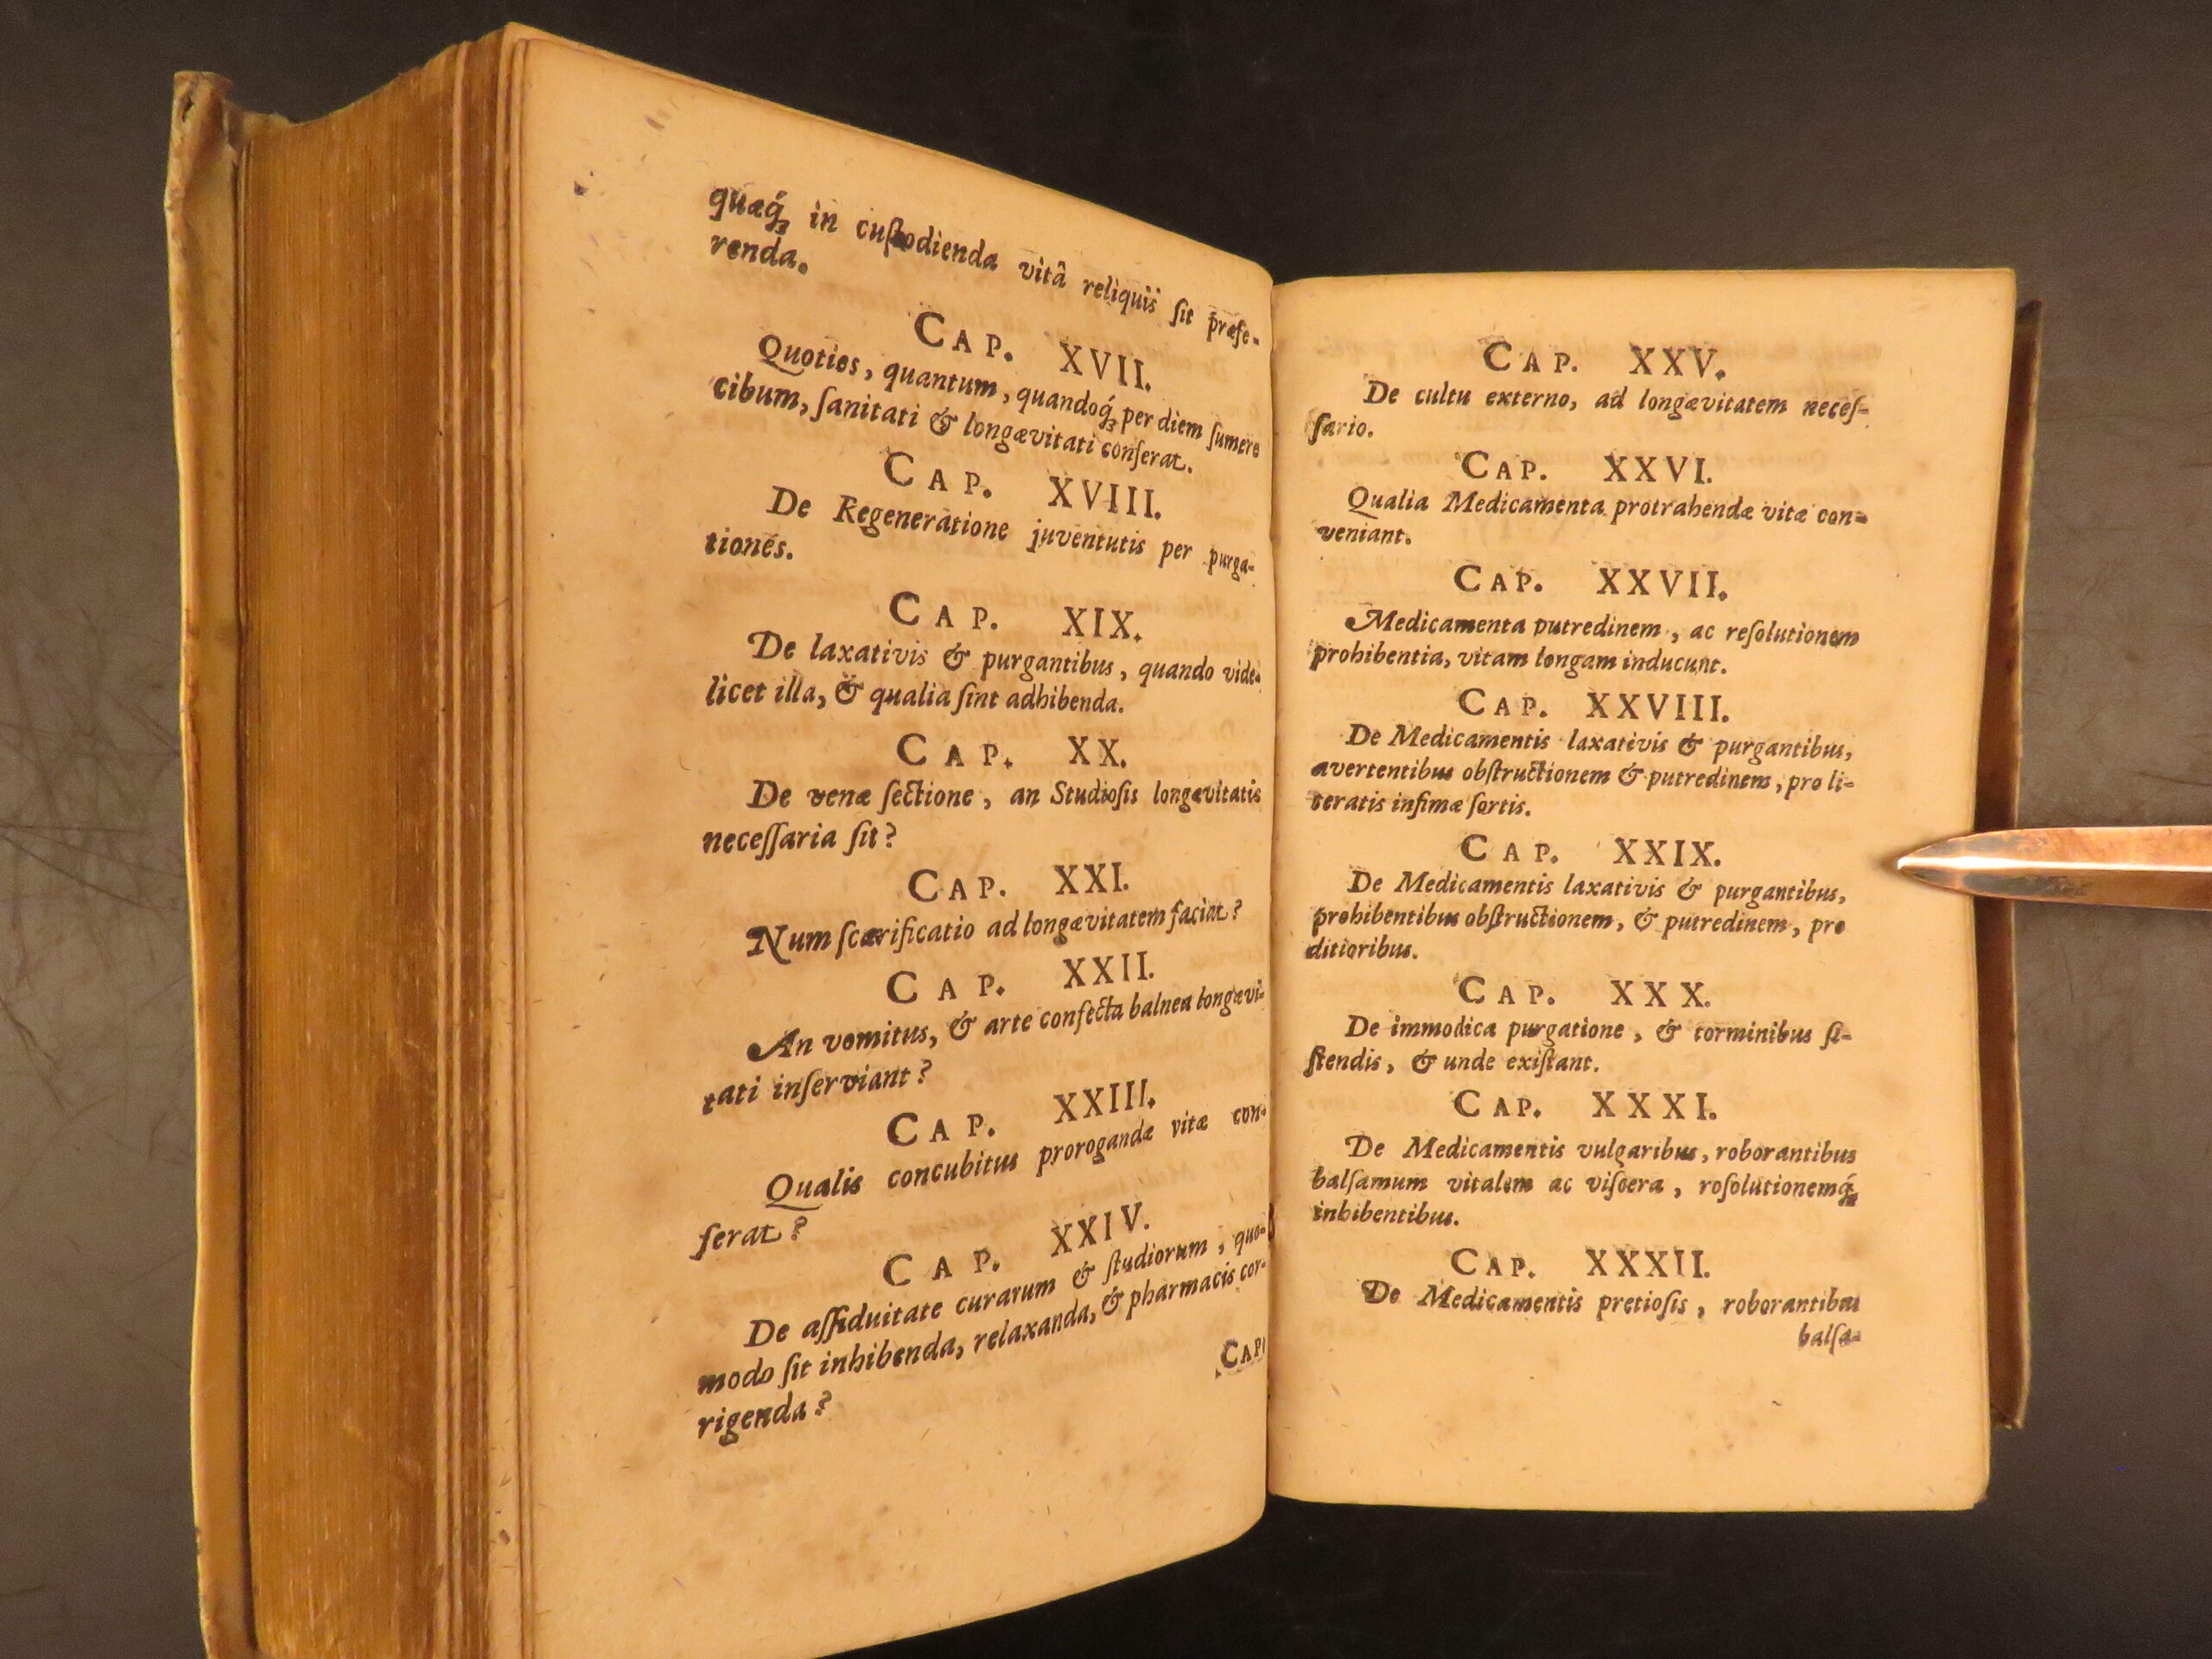 quæq́ꝫ in cuſtodienda vitâ reliquïs ſit præfe-
renda.
CAP. XVII.
Quoties, quantum, quandoq́ꝫ per diem ſumere
cibum, ſanitati & longævitati conferat.
CAP. XVIII.
De Regeneratione juventutis per purga-
tiones.
CAP. XIX.
De laxativis & purgantibus, quando vide-
licet illa, & qualia ſint adhibenda.
CAP. XX.
De venæ ſectione, an Studioſis longævitatis
neceſſaria ſit?
CAP. XXI.
Num ſcarificatio ad longævitatem faciat?
CAP. XXII.
An vomitus, & arte confecta balnea longævi-
tati inſerviant?
CAP. XXIII.
Qualis concubitus prorogandæ vitæ con-
ferat?
CAP. XXIV.
De aſſiduitate curarum & ſtudiorum, quo-
modo ſit inhibenda, relaxanda, & pharmacis cor-
rigenda?
CAP.
CAP. XXV.
De cultu externo, ad longævitatem neceſ-
ſario.
CAP. XXVI.
Qualia Medicamenta protrahendæ vitæ con-
veniant.
CAP. XXVII.
Medicamenta putredinem, ac reſolutionem
prohibentia, vitam longam inducunt.
CAP. XXVIII.
De Medicamentis laxativis & purgantibus,
avertentibus obſtructionem & putredinem, pro li-
teratis infimæ ſortis.
CAP. XXIX.
De Medicamentis laxativis & purgantibus,
prohibentibus obſtructionem, & putredinem, pro
ditioribus.
CAP. XXX.
De immodica purgatione, & torminibus ſi-
ſtendis, & unde exiſtant.
CAP. XXXI.
De Medicamentis vulgaribus, roborantibus
balſamum vitalem ac viſcera, roſolutionemq́ꝫ
inhibentibus.
CAP. XXXII.
De Medicamentis pretioſis, roborantibus
balſa-